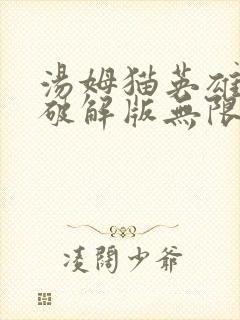 湯姆猫英雄
破解版無限
凌闊少爺